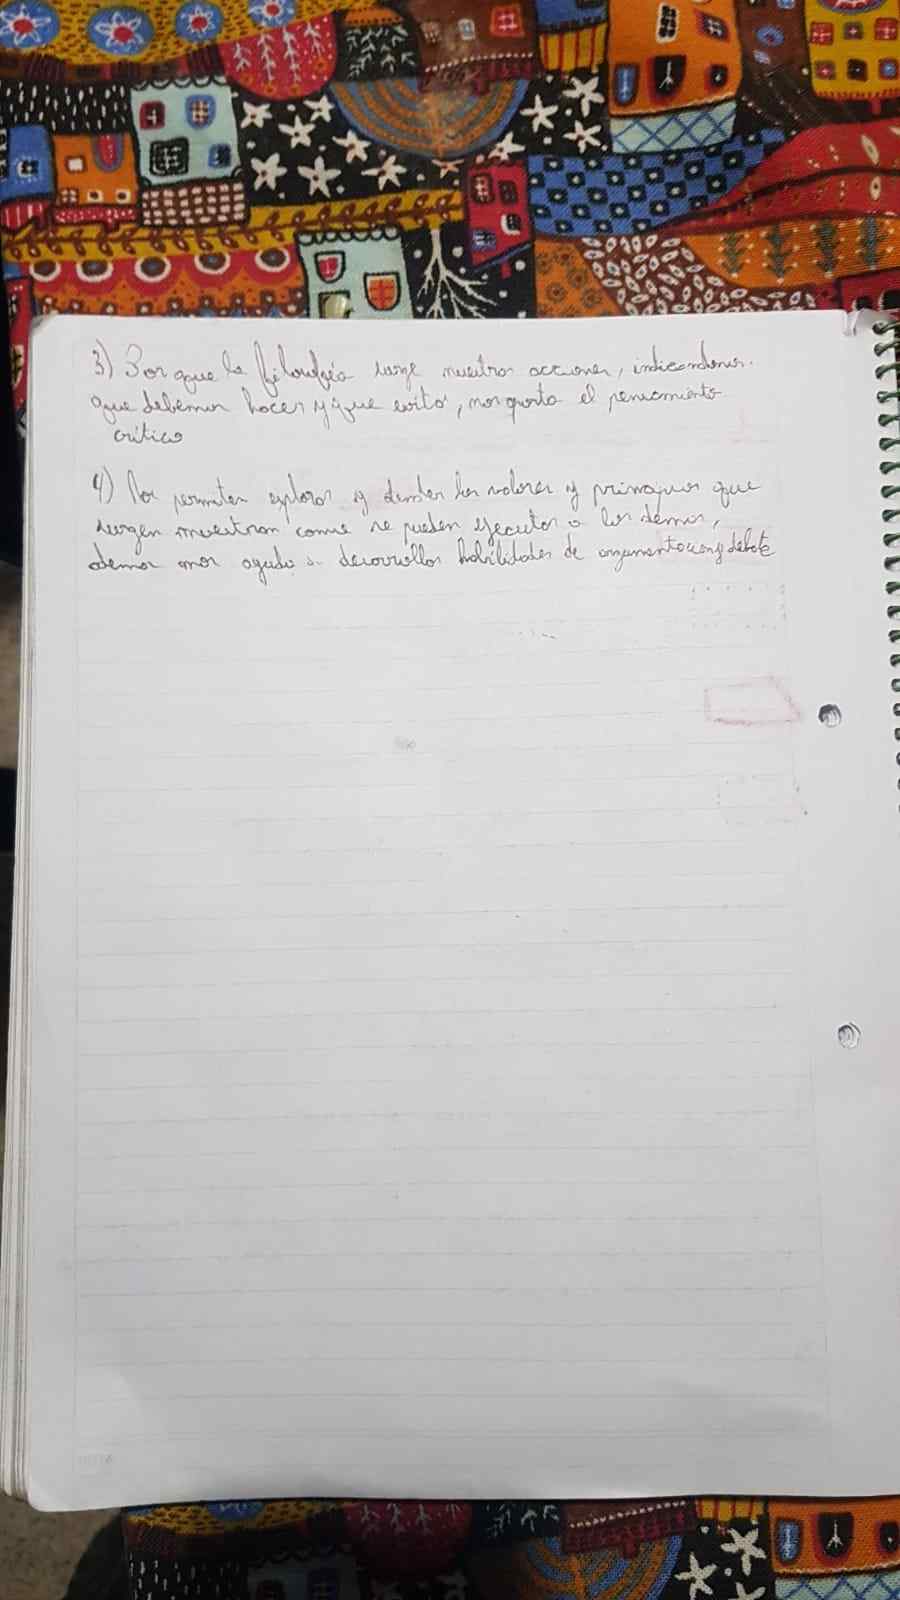 3) Por que la filosofía surge nuestras acciones, indicandonos.
que debemos hacer y que evitar, nos gusta el pensamiento
critico
4) Nos permiten explorar y los valores y principios que
surgen muestran como se pueden ejecutar a los demas,
ademas nos ayuda a desarrollar habilidades de argumentacion y debate